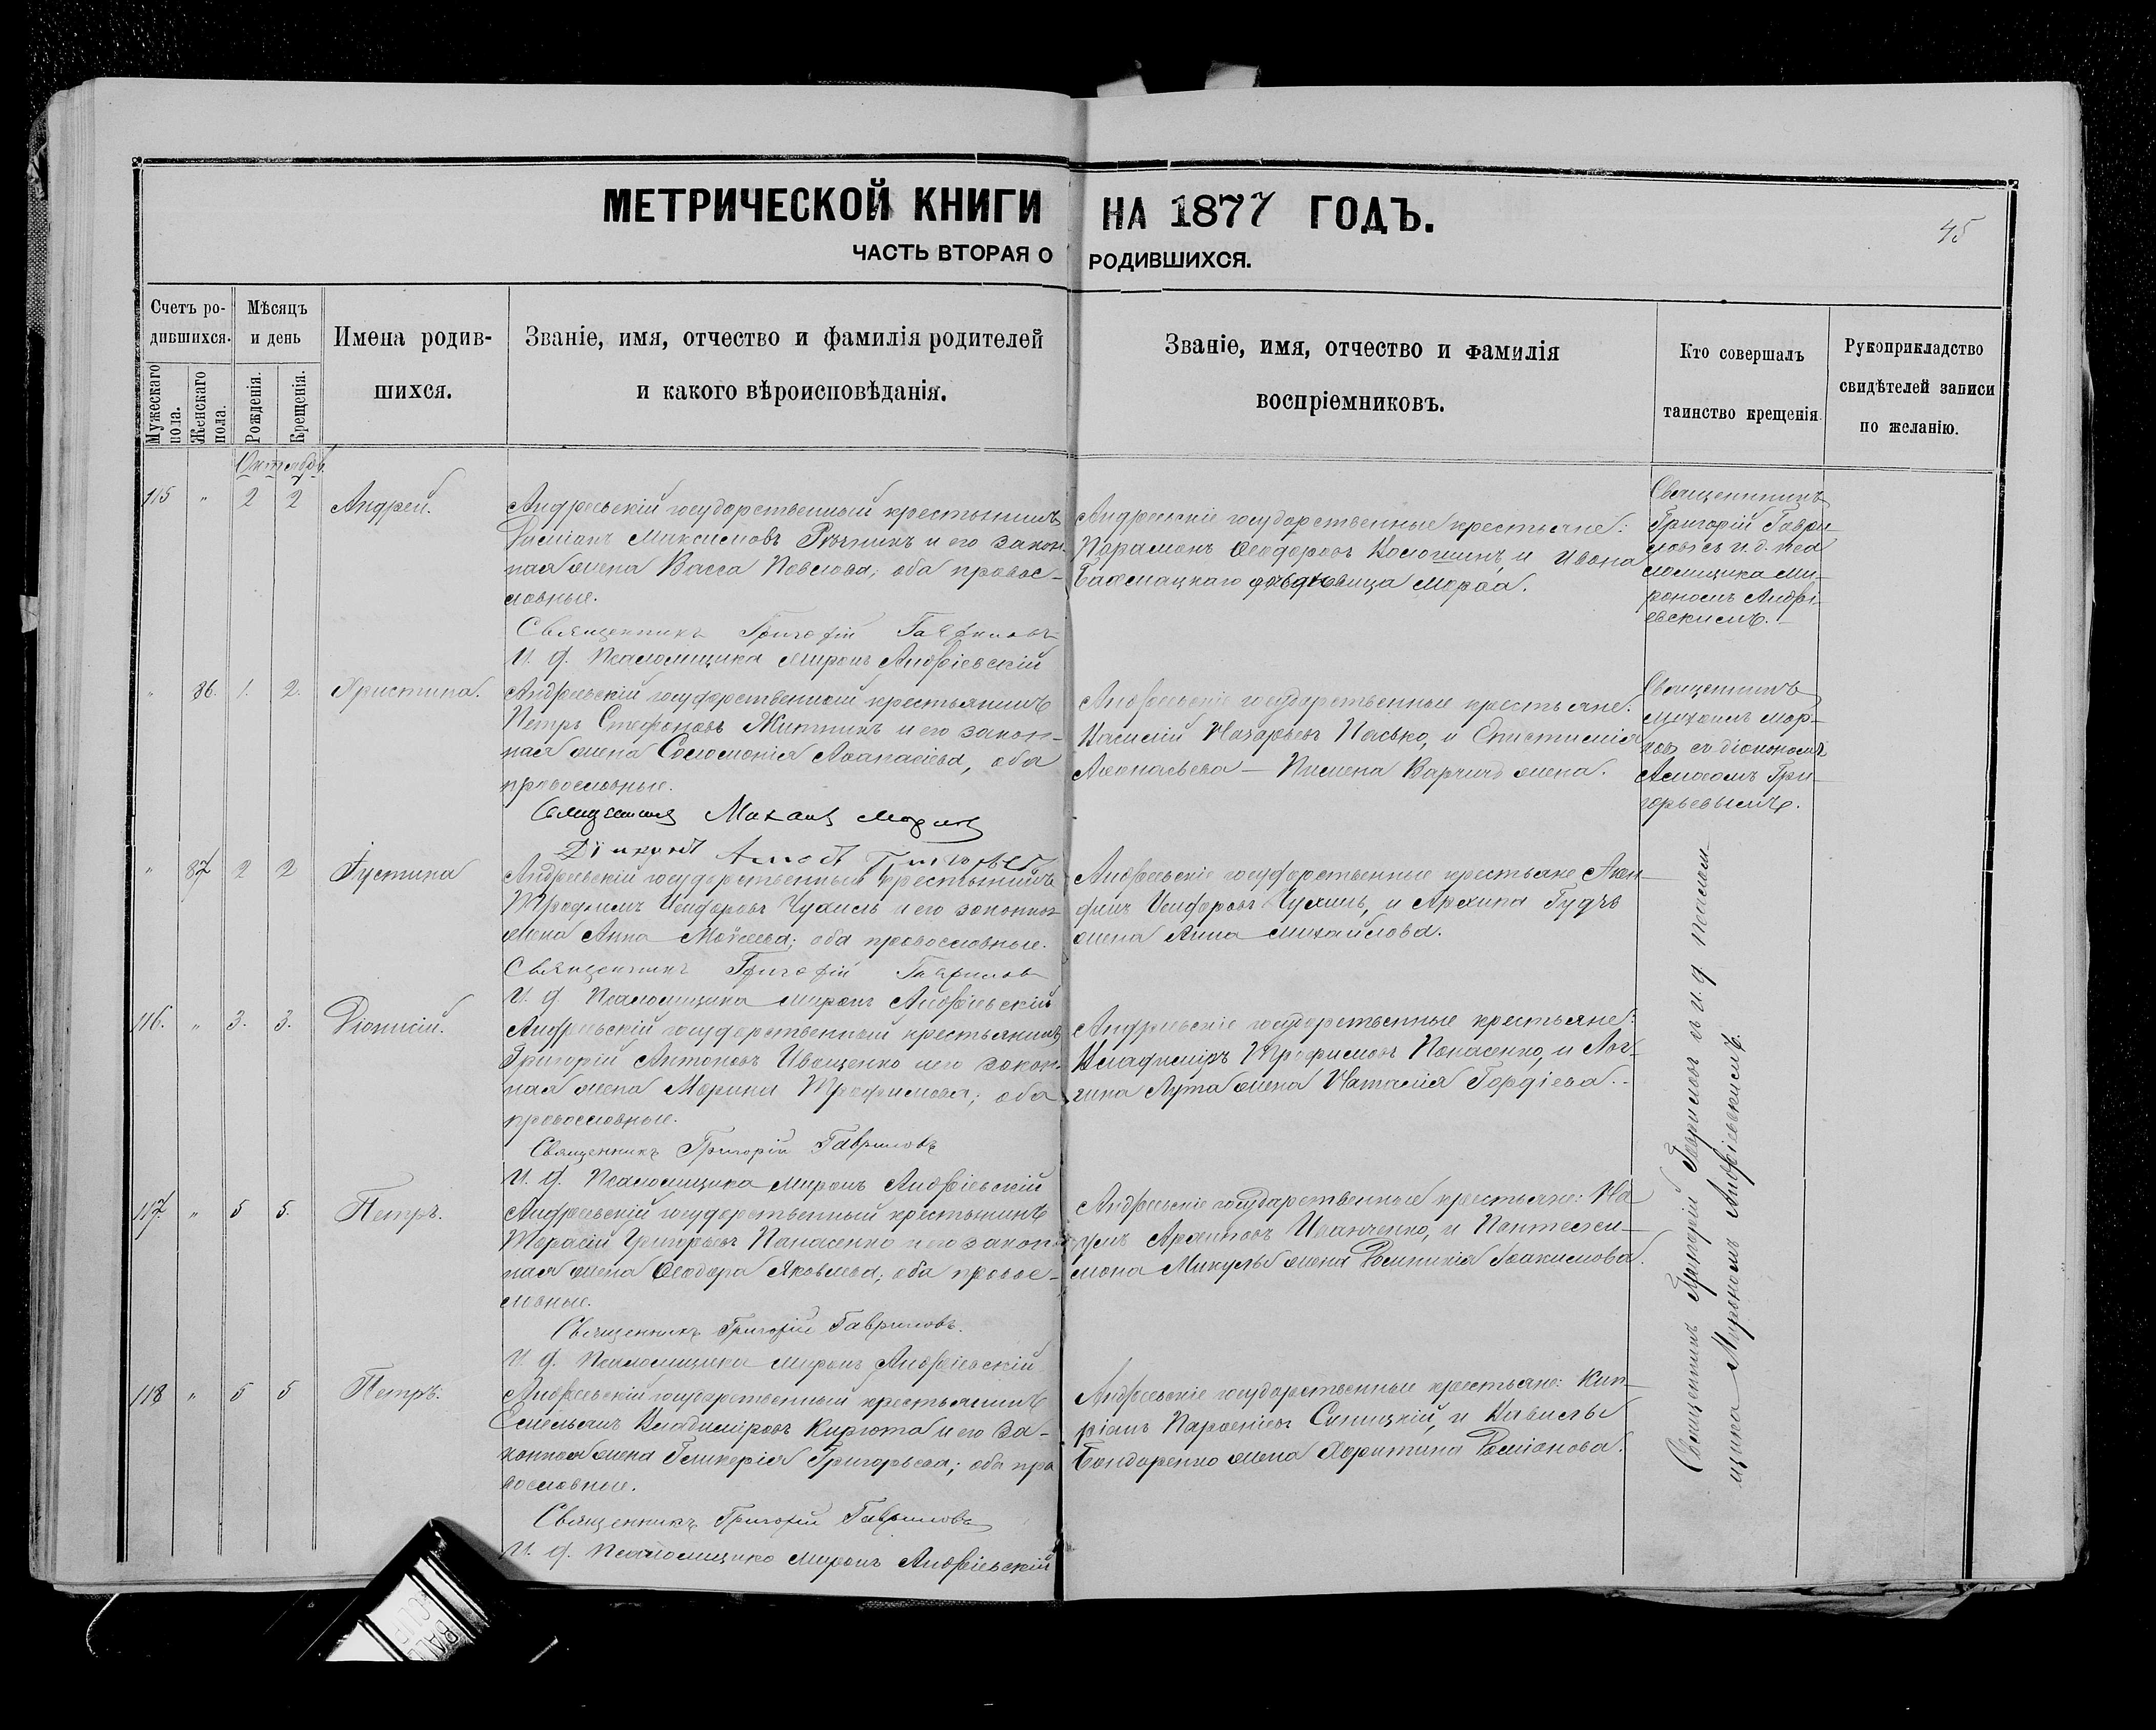 МЕТРИЧЕСКОЙ КНИГИ НА 1877 ГОДЪ.
45
ЧАСТЬ ВТОРАЯ О РОДИВШИХСЯ.
Счетъ ро-
дившихся.
Мужескаго пола.
Женскаго пола.
Мѣсяцъ
и день
Рожденія.
Крещенія.
Имена родив-
шихся.
Званіе, имя, отчество и фамилія родителей
и какого вѣроисповѣданія.
Званіе, имя, отчество и фамилія
воспріемниковъ.
Кто совершалъ
таинство крещенія
Рукоприкладство
свидѣтелей записи
по желанію.
Октябрь
115 " 2 2 Андрей.
Андреевскій государственный крестьянинъ
Максимовъ и его закон-
ная жена Васса Павлова; оба правос-
лавные.
Священникъ Григорій Гавриловъ
И. д. Псаломщика Миронъ Андріевскій
Андреевскіе государственные крестьяне:
Парамонъ Ѳеодоровъ и Ивана
Бахмацкаго дѣвица Марѳа.
Священникъ
Григорій Гаври-
ловъ съ и. д. Пса
ломщика Ми-
рономъ Андрі-
евскимъ.
" 86. 1. 2. Христина.
Андреевскій государственный крестьянинъ
Петръ Стефановъ Житникъ и его закон-
ная жена Соломонія Аѳанасіева, оба
православные.
Священникъ Михаилъ
Діаконъ Амосъ Григорьевъ
Андреевскіе государственные крестьяне:
Василій Назарьевъ Пасько, и Епистимія
Аѳонасьева — Пимена жена.
Священникъ
Михаилъ Мар-
ковъ съ діакономъ
Амосомъ Гри-
горьевымъ.
" 87 2 2 Іустина
Андреевскій государственный крестьянинъ
Трофимъ Исидоровъ Чухиль и его законная
жена Анна Моѵсеева; оба православные.
Священникъ Григорій Гавриловъ
И. д. Псаломщика Миронъ Андріевскій
Андреевскіе государственные крестьяне
Исидоровъ Чухиль, и Архипа Гудзь
жена Анна Михайлова.
116. " 3. 3. Діонисій.
Андреевскій государственный крестьянинъ
Григорій Антоновъ Иващенко и его закон-
ная жена Марина Трофимова; оба
православные.
Священникъ Григорій Гавриловъ
И. д. Псаломщика Миронъ Андріевскій
Андреевскіе государственные крестьяне:
Владиміръ Трофимовъ Панасенко, и Лон-
гина Лута жена Наталія Гордіева.
117. " 5 5. Петръ.
Андреевскій государственный крестьянинъ
Тарасій Григорьевъ Панасенко и его закон-
ная жена Ѳеодора Яковлева; оба правос-
лавные.
Священникъ Григорій Гавриловъ.
И. д. Псаломщика Миронъ Андріевскій
Андреевскіе государственные крестьяне: На
умъ Архиповъ Иванченко, и Пантелеи-
мона Микулы жена Іоакимова.
118 " 5 5 Петръ.
Андреевскій государственный крестьянинъ
Емельянъ Владиміровъ Кирюта и его за-
конная жена Гликерія Григорьева; оба пра
вославные.
Священникъ Григорій Гавриловъ
И. д. Псаломщика Миронъ Андріевскій
Андреевскіе государственные крестьяне: Кип-
ріанъ Парѳеніевъ Синицкій, и Вавилы
Бондаренко жена Харитина
Священникъ Григорій Гавриловъ съ и. д. псалом-
щика Мирономъ Андріевскимъ.